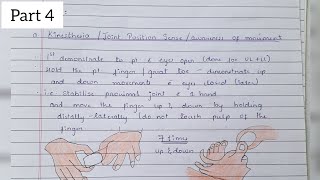 Part 4
a Kinesthesia / Joint Position Sense / awareness of movement
1st demonstrate to pt c̄ eyes open (done for UL + LL)
Hold the pt finger / great toe - demonstrate up
and down movements c̄ eyes closed
i.e stabilise proximal joint c̄ 1 hand
and move the finger up & down by holding
distally - laterally (do not touch pulp of the
finger
7 times
up & down